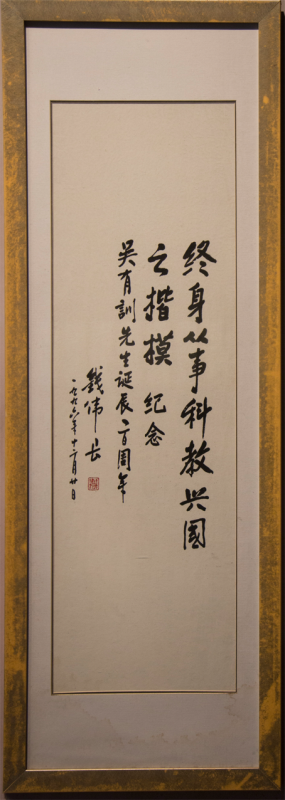 终身从事科教兴國
之楷模 纪念
吴有訓先生诞辰一百周年
錢伟长
一九九六年十二月廿日